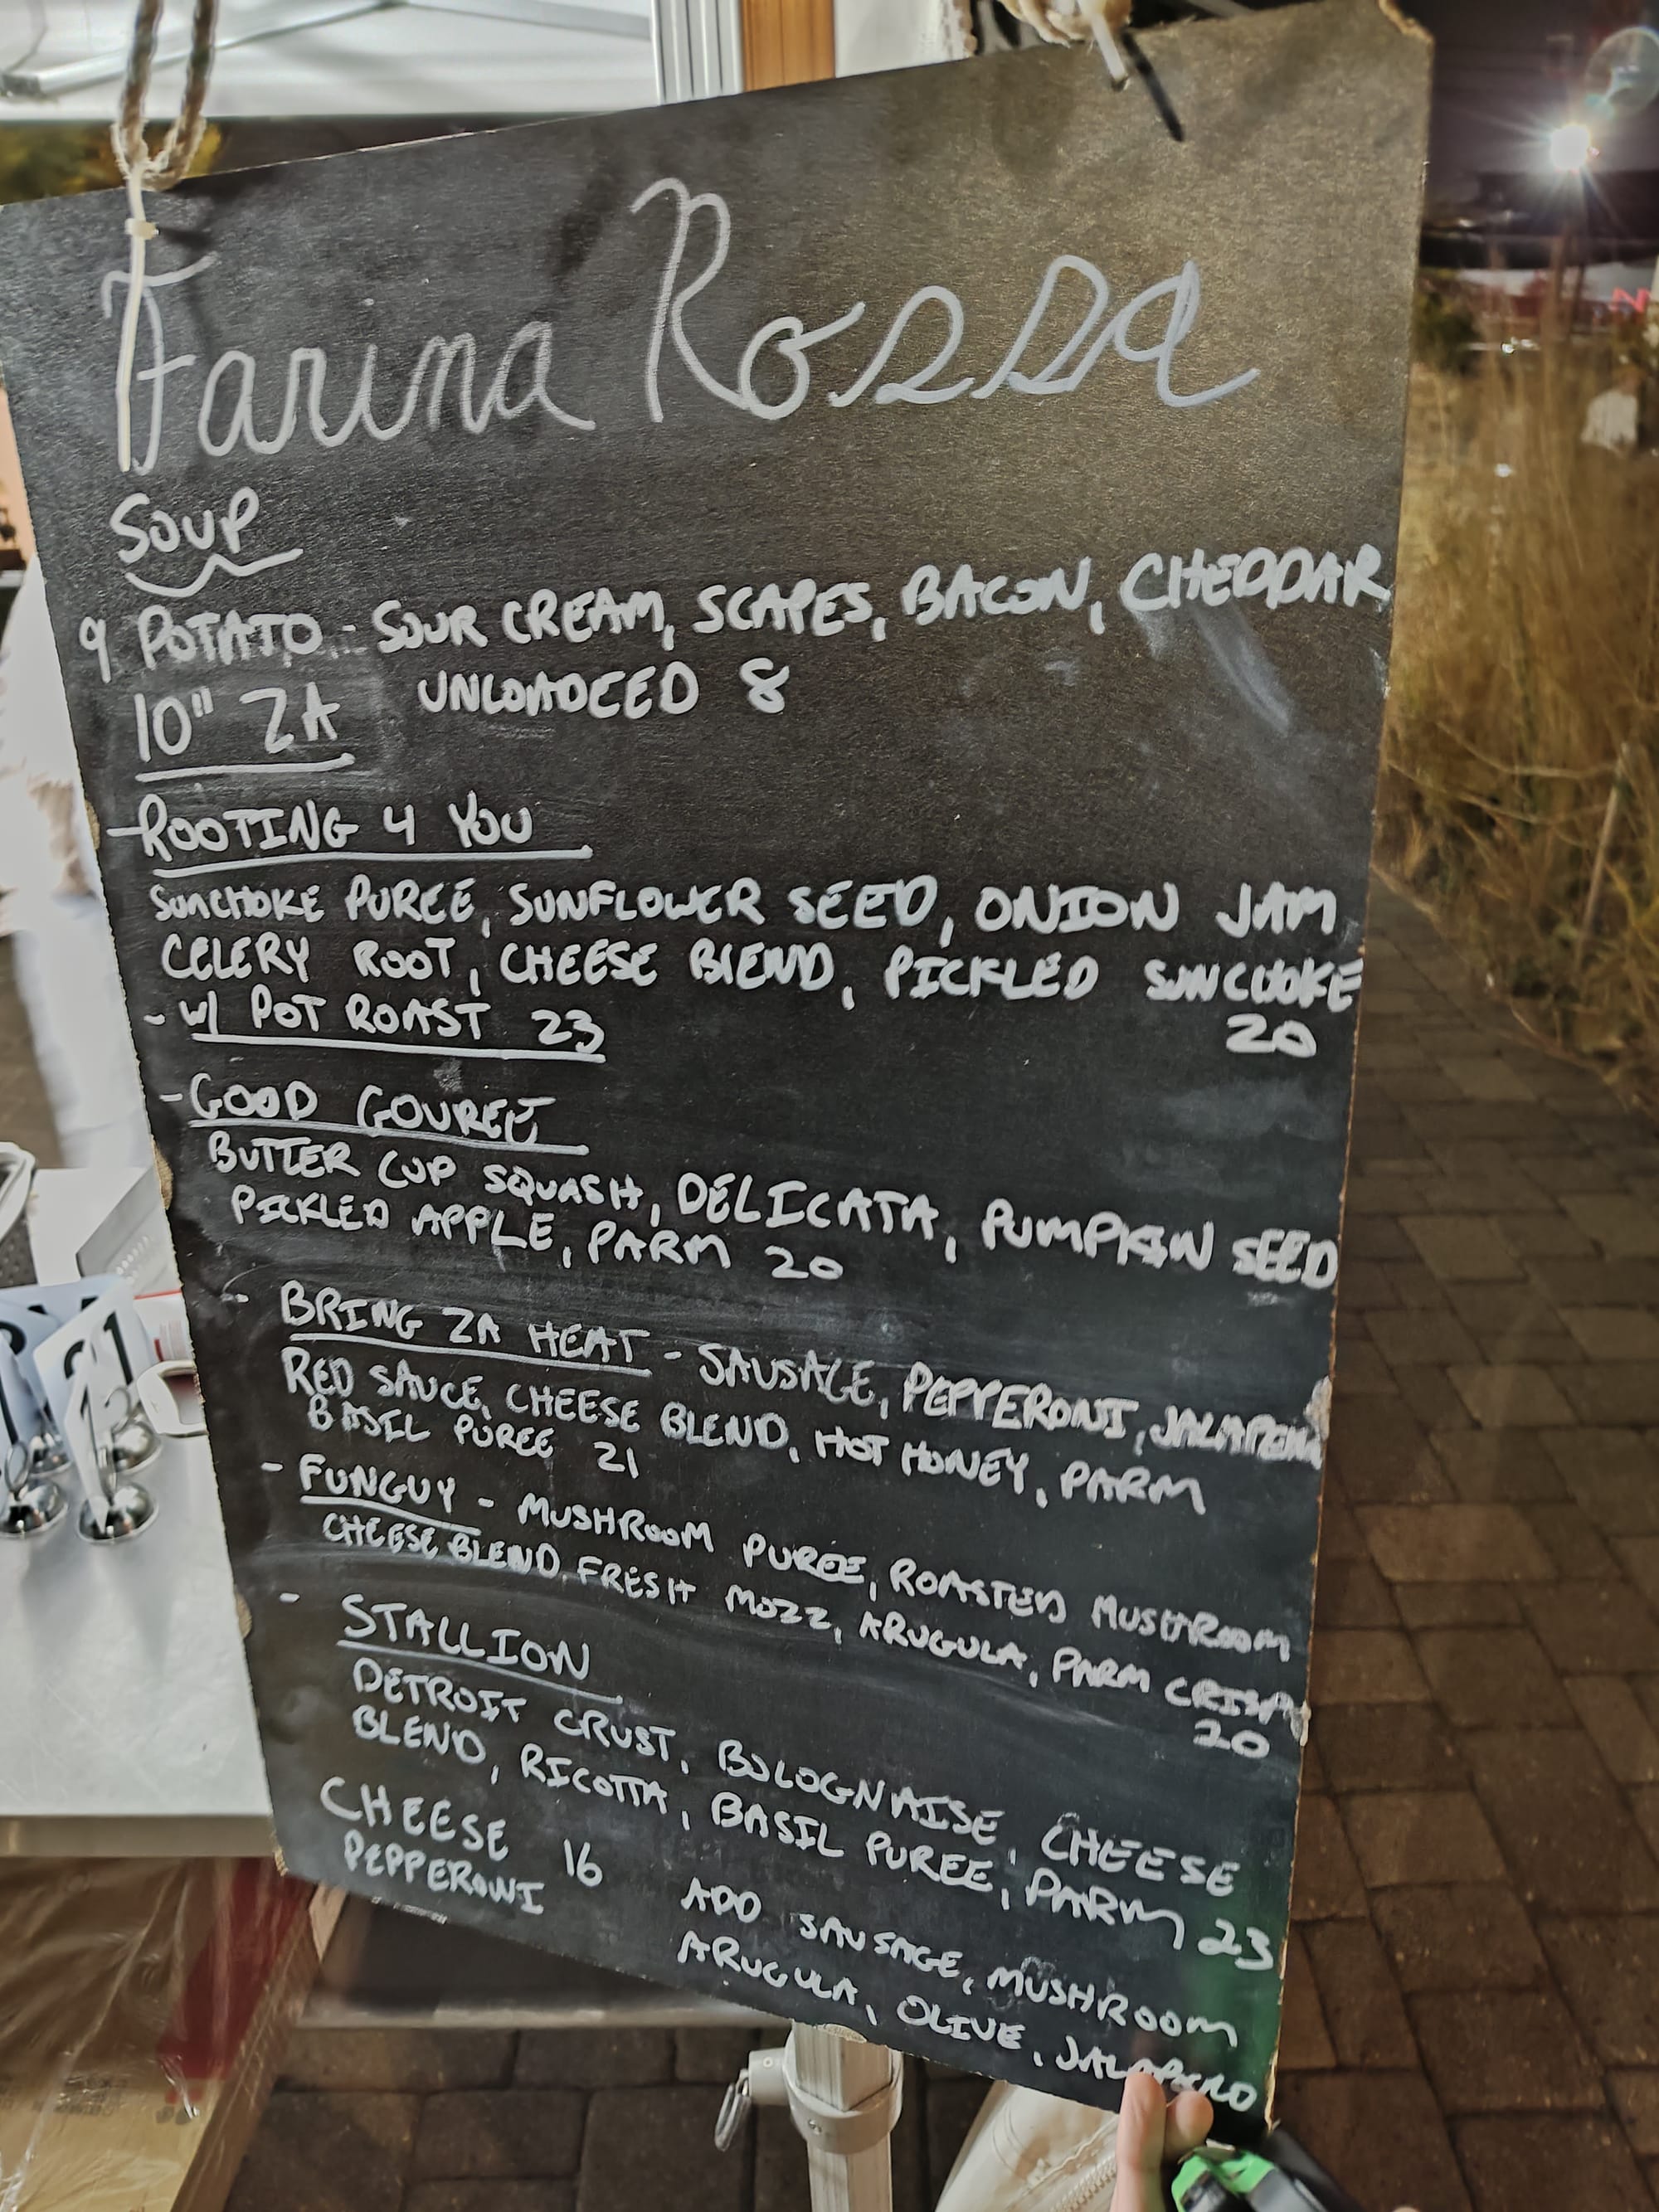 Farina Rossa
SOUP
9 POTATO - SOUR CREAM, SCAPES, BACON, CHEDDAR
UNLOADED 8
10" ZA
- ROOTING 4 YOU
SUNCHOKE PUREE, SUNFLOWER SEED, ONION JAM
CELERY ROOT, CHEESE BLEND, PICKLED SUNCHOKE
20
- W/ POT ROAST 23
- GOOD GOUREE
BUTTER CUP SQUASH, DELICATA, PUMPKIN SEED
PICKLED APPLE, PARM 20
- BRING ZA HEAT - SAUSAGE, PEPPERONI, JALAPENO
RED SAUCE, CHEESE BLEND, HOT HONEY, PARM
BASIL PUREE 21
- FUNGUY - MUSHROOM PUREE, ROASTED MUSHROOM
CHEESE BLEND, FRESH MOZZ, ARUGULA, PARM CRISP
20
- STALLION
DETROIT CRUST, BOLOGNAISE, CHEESE
BLEND, RICOTTA, BASIL PUREE, PARM 23
CHEESE 16
PEPPERONI
ADD SAUSAGE, MUSHROOM
ARUGULA, OLIVE, JALAPENO
21